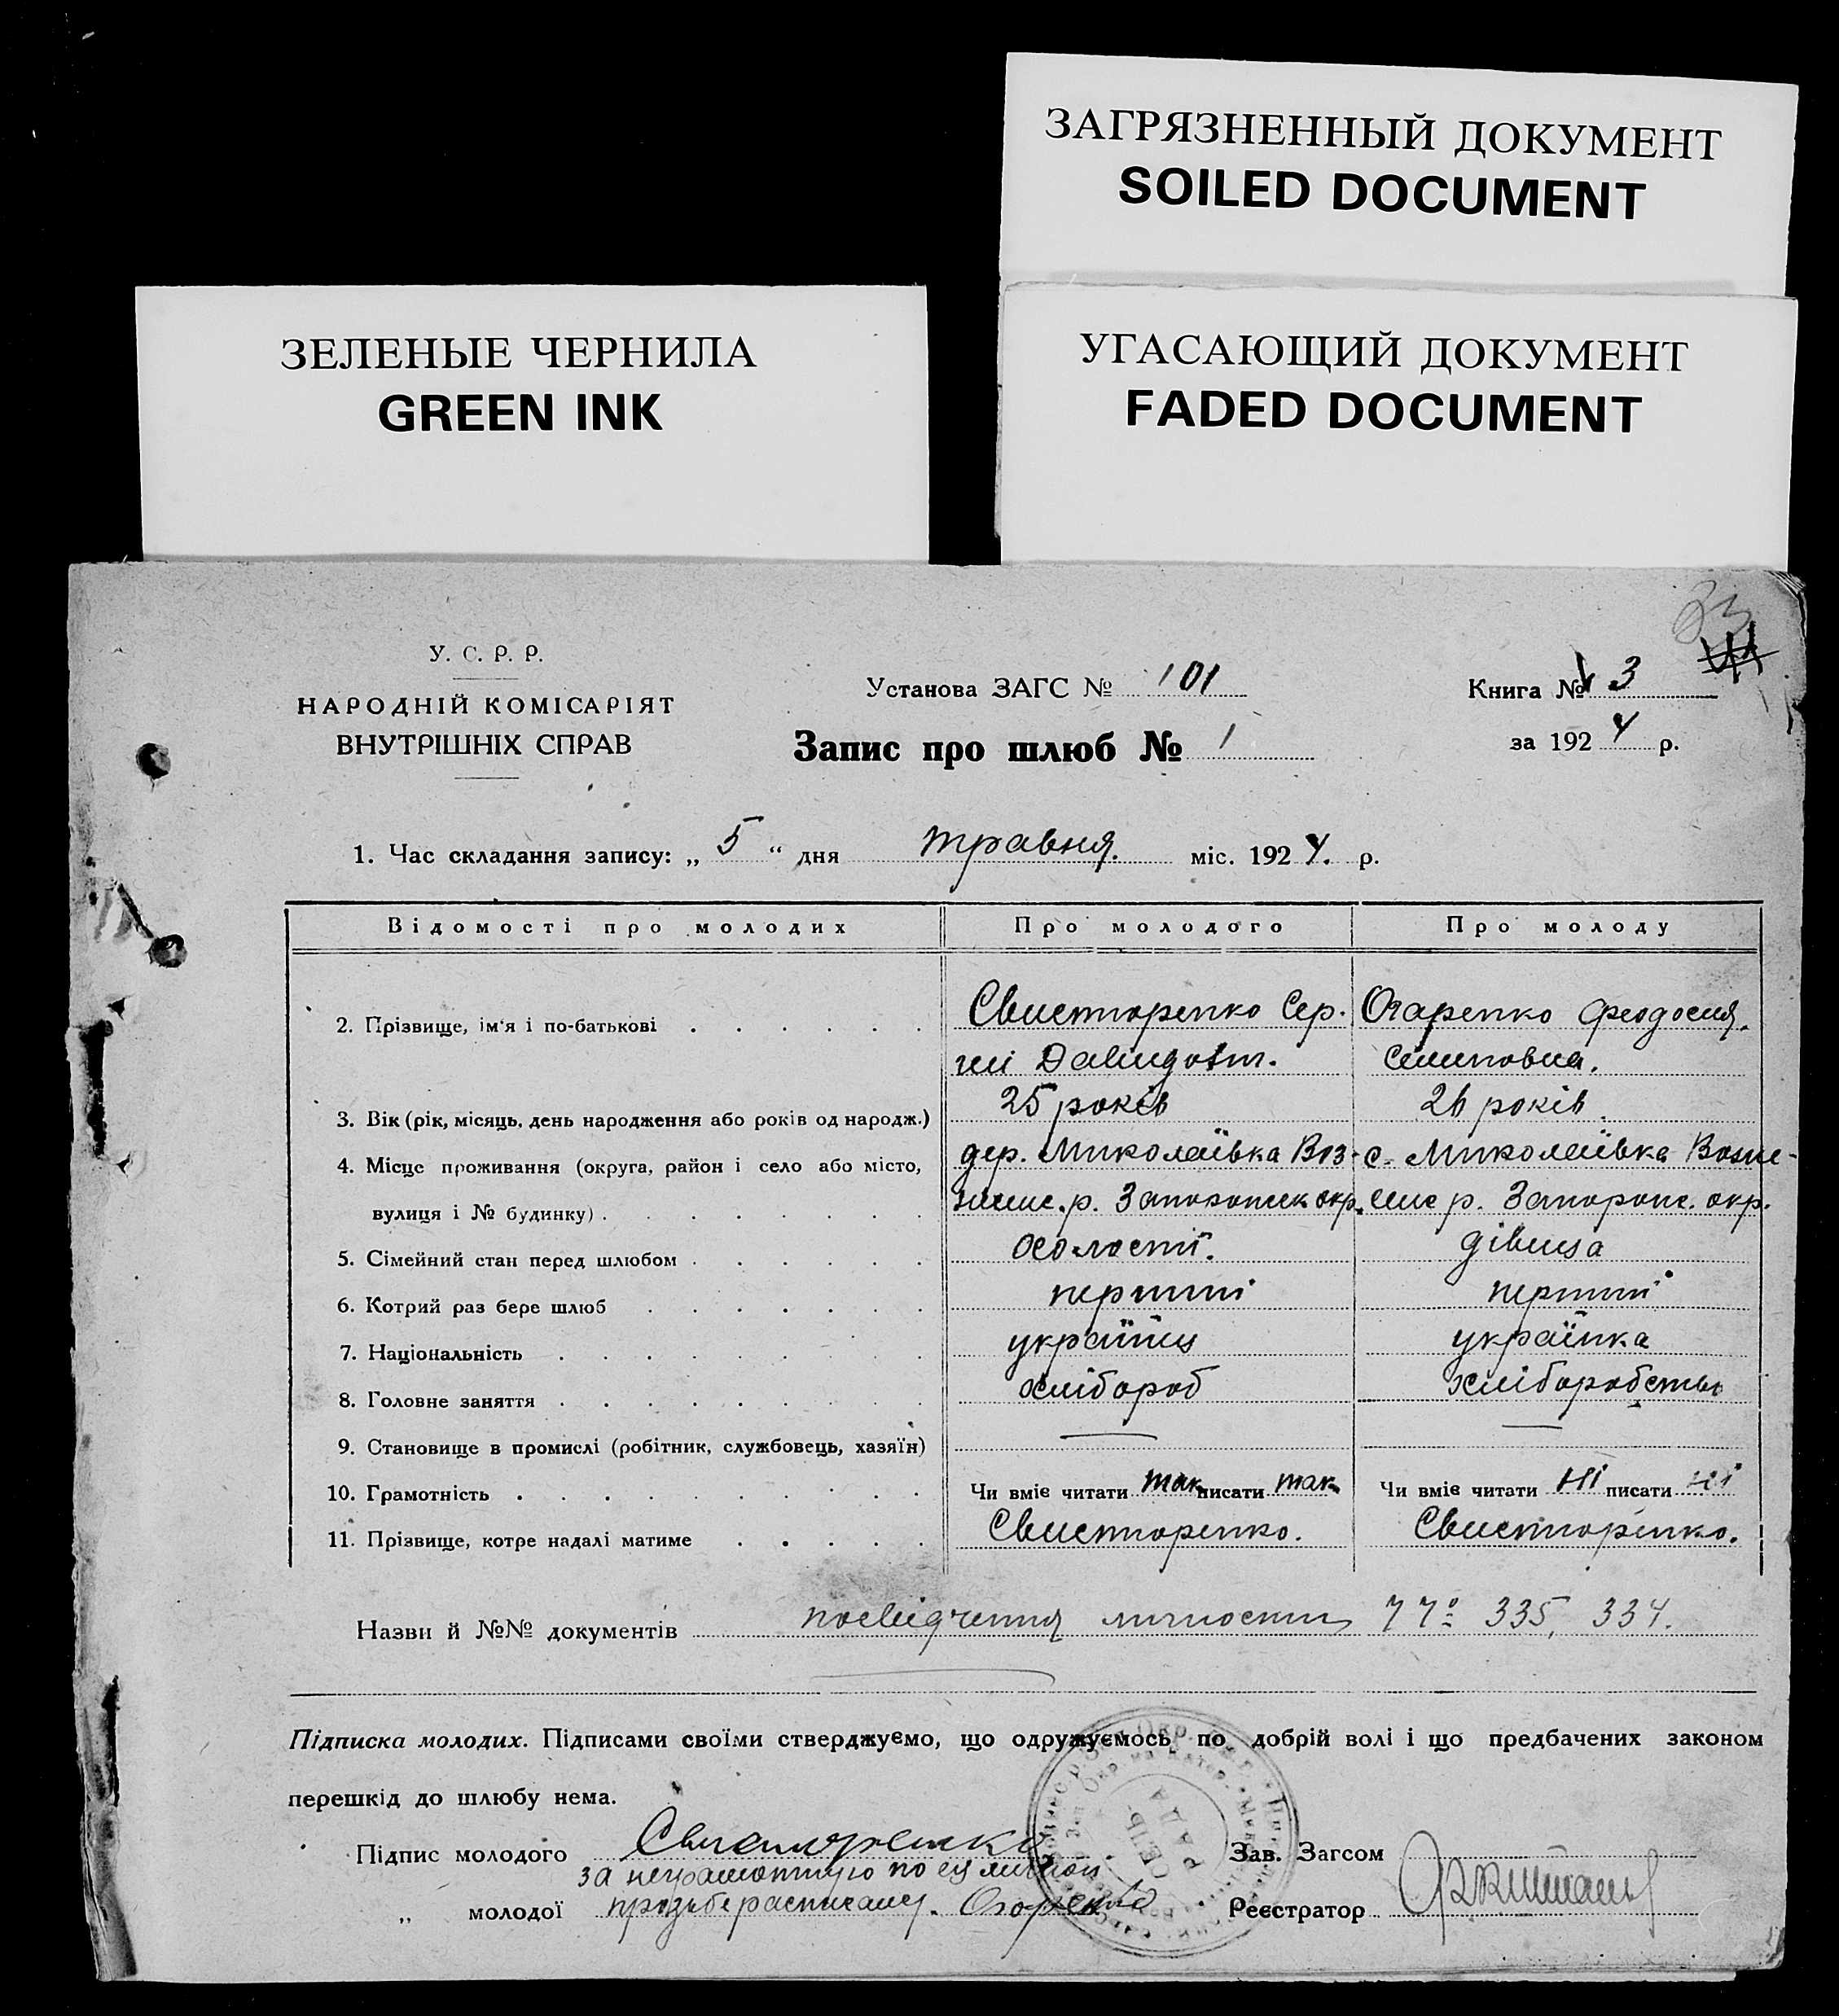 ЗАГРЯЗНЕННЫЙ ДОКУМЕНТ
SOILED DOCUMENT
ЗЕЛЕНЫЕ ЧЕРНИЛА
GREEN INK
УГАСАЮЩИЙ ДОКУМЕНТ
FADED DOCUMENT
33
У. С. Р. Р.
НАРОДНІЙ КОМІСАРІЯТ
ВНУТРІШНІХ СПРАВ
Установа ЗАГС № 101
Запис про шлюб № 1
Книга № 3
за 1924 р.
1. Час складання запису: „ 5 “ дня травня. міс. 1924. р.
Відомості про молодих Про молодого Про молоду
2. Прізвище, ім'я і по-батькові . . . . . . Свисторенко Сер- Огаренко Феодосия
гій Давидов. 
3. Вік (рік, місяць, день народження або років од народж.) 25 років 26 років.
4. Місце проживання (округа, район і село або місто, дер. Миколаївка Воз- с. Миколаївка Возне-
вулиця і № будинку) . . . . . . . р. Запорожск. окр. р. Запорож. окр.
5. Сімейний стан перед шлюбом . . . . . . холості. дівица
6. Котрий раз бере шлюб . . . . . . . перший перший
7. Національність . . . . . . . українц українка
8. Головне заняття . . . . . . . . хлібороб хліборобство
9. Становище в промислі (робітник, службовець, хазяїн) — —
10. Грамотність . . . . . . . . . Чи вміє читати так писати так Чи вміє читати ні писати ні
11. Прізвище, котре надалі матиме . . . . . Свисторенко. Свисторенко.
Назви й №№ документів посвідчення личности 335, 334.
Підписка молодих. Підписами своїми стверджуємо, що одружуємось по добрій волі і що предбачених законом
перешкід до шлюбу нема.
Підпис молодого Свисторенко Зав. Загсом
за неграмотную по ец личной
„ молодої прозьбе расписался. Огаренко Реєстратор
СЕЛЬ-
РАДА